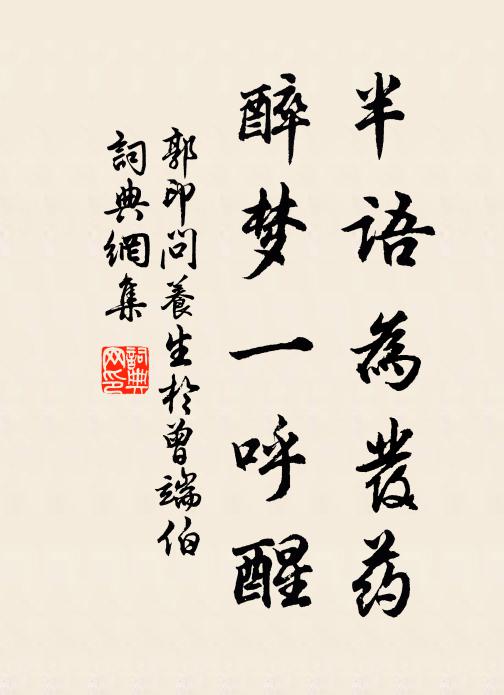 半語為發药
醉梦一呼醒
郭印問養生於曾端伯
詞典網集
詞典网印